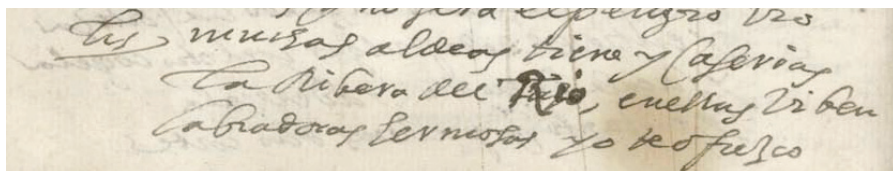 y no sera el peligro tro
Lis muchas aldeas tiene y Caserias
La Ribera del Rio, en ellas viben
labradoras hermosas yo te ofrezco